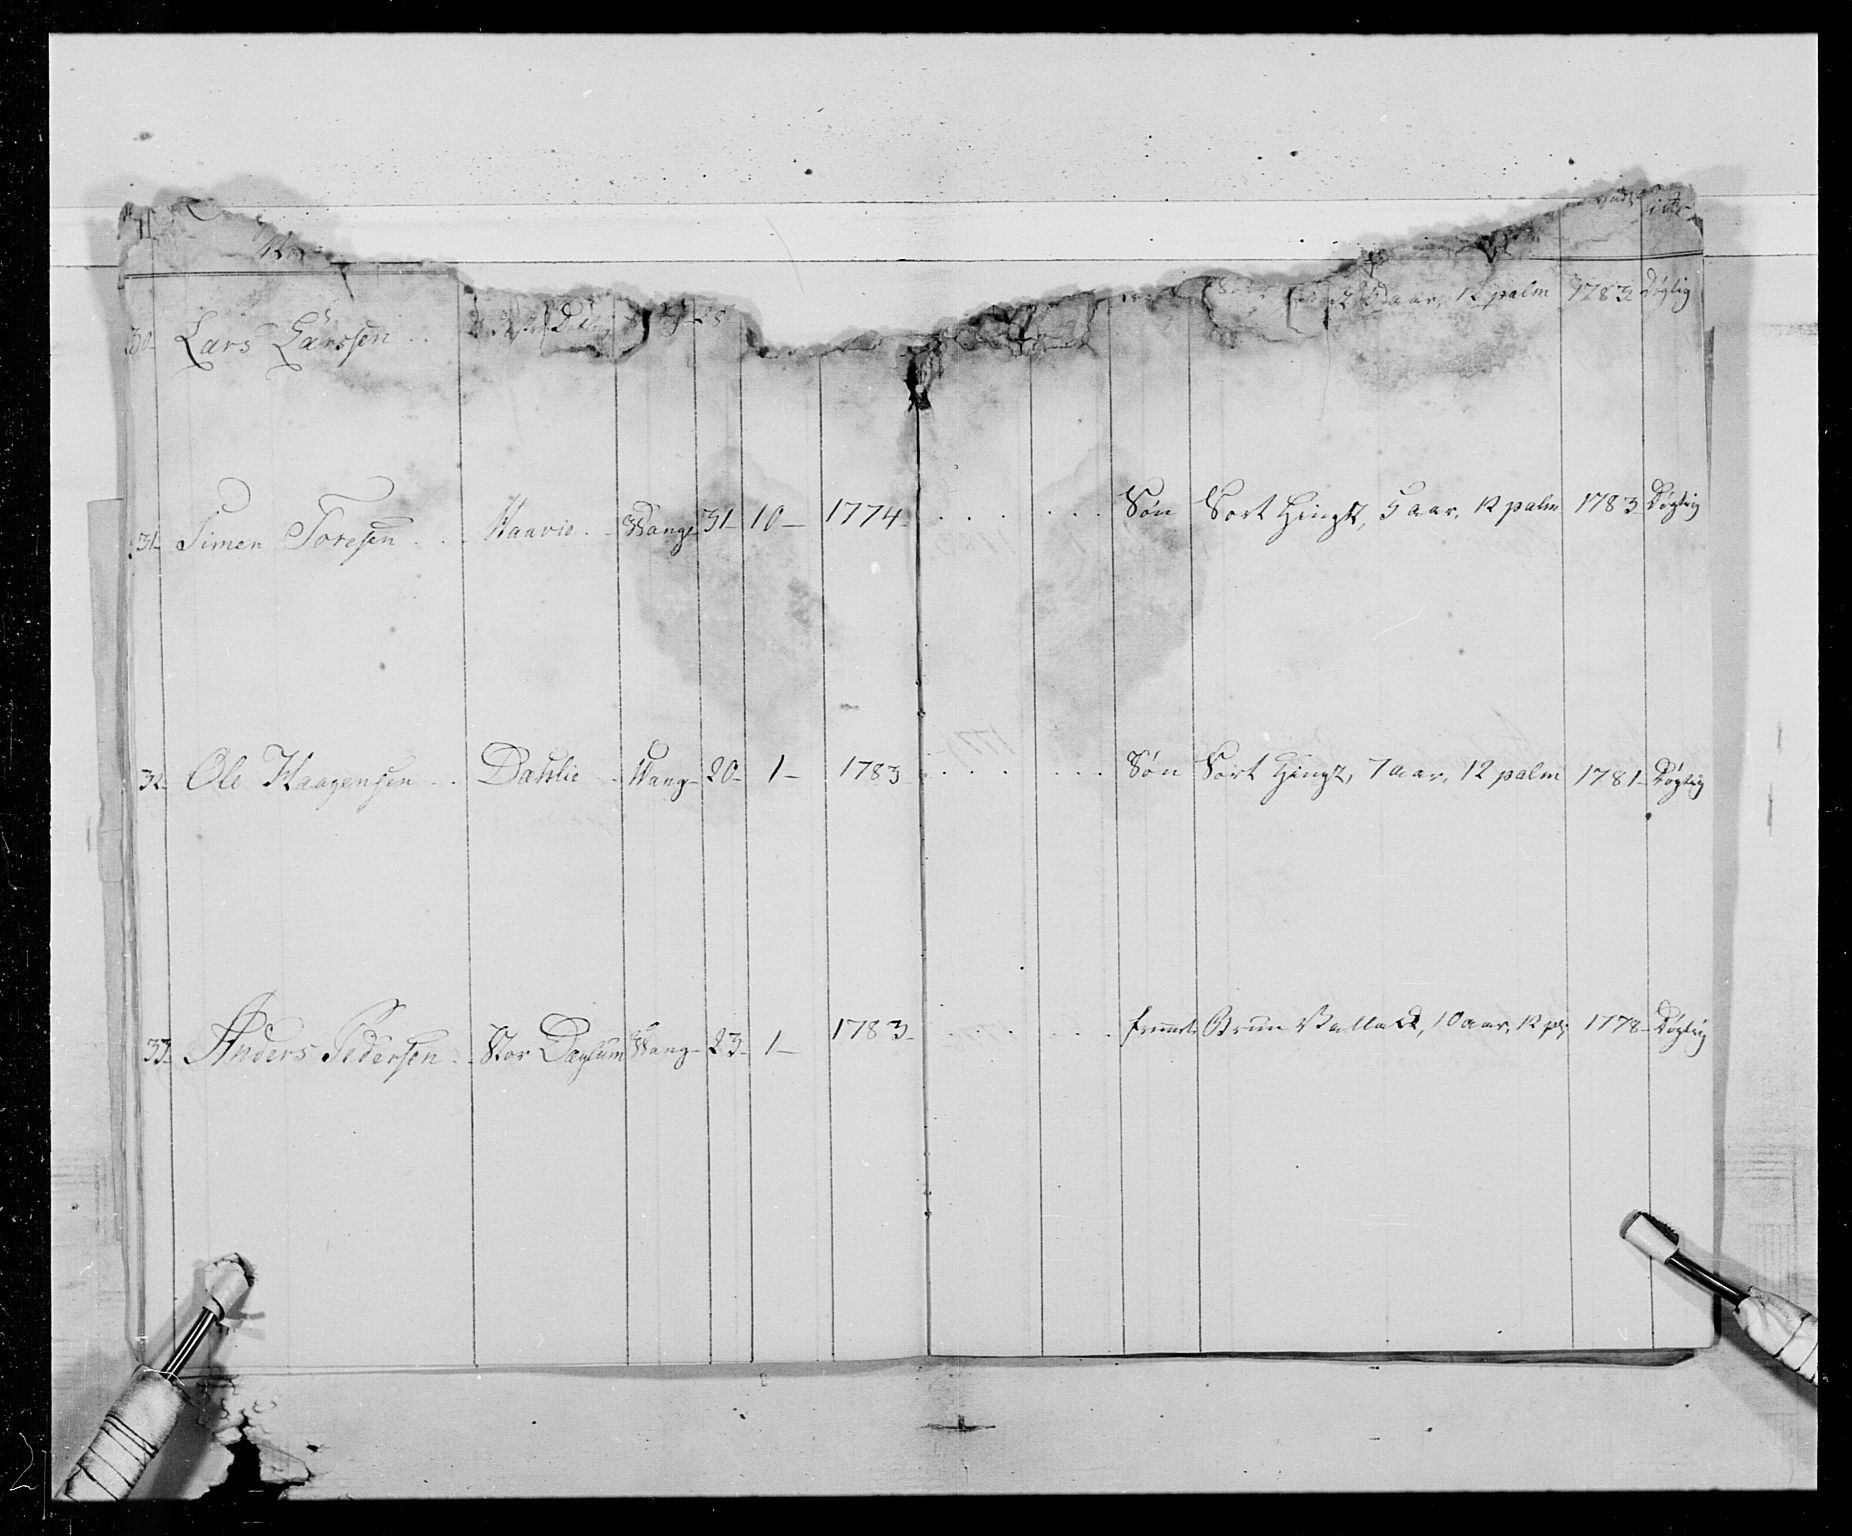 30- Lars Larssen . . 28 5 aar, 12 palm 1783 Døgtig
31- Simen Toresen . . . Haavie . . Wang- 31- 10- 1774- . . . . . . Søn Sort Hingst, 5 aar, 12 palm 1783- Døgtig
32- Ole Haagensen . . Dahlie - Wang- 20- 1- 1783 . . . . . . Søn Sort Hingst, 7 aar, 12 palm 1781- Døgtig
33- Anders Pedersen . . Stor Daglum Wang- 23- 1- 1783- . . . . . . fremd. Brun Vallack, 10 aar, 12 pl: 1778- Døgtig